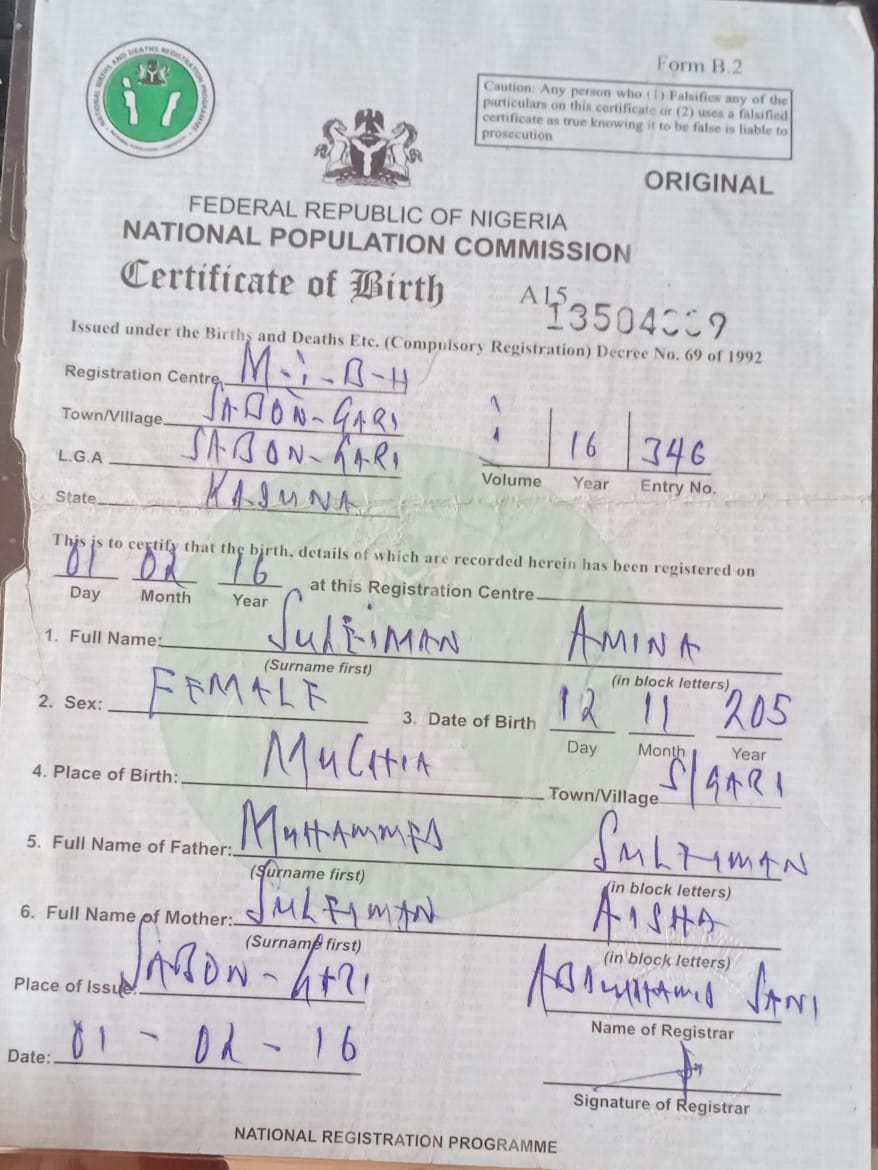 NATIONAL BIRTHS AND DEATHS REGISTRATION PROGRAMME
NATIONAL POPULATION COMMISSION
Form B.2
Caution: Any person who (1) Falsifies any of the
particulars on this certificate or (2) uses a falsified
certificate as true knowing it to be false is liable to
prosecution
ORIGINAL
FEDERAL REPUBLIC OF NIGERIA
NATIONAL POPULATION COMMISSION
Certificate of Birth
A15
Issued under the Births and Deaths Etc. (Compulsory Registration) Decree No. 69 of 1992
Registration Centre M-i-B-H
Town/Village SABON-GARI
L.G.A SABON-GARI
State KADUNA
16 346
Volume Year Entry No.
This is to certify that the birth, details of which are recorded herein has been registered on
01 02 16 at this Registration Centre
Day Month Year
1. Full Name: SULEIMAN AMINA
(Surname first) (in block letters)
2. Sex: FEMALE 3. Date of Birth 12 11 205
Day Month Year
4. Place of Birth: MUCHIA Town/Village S/GARI
5. Full Name of Father: MUHAMMED SULEIMAN
(Surname first) (in block letters)
6. Full Name of Mother: SULEIMAN AISHA
(Surname first) (in block letters)
Place of Issue: SABON-GARI SANI
Name of Registrar
Date: 01-02-16
Signature of Registrar
NATIONAL REGISTRATION PROGRAMME